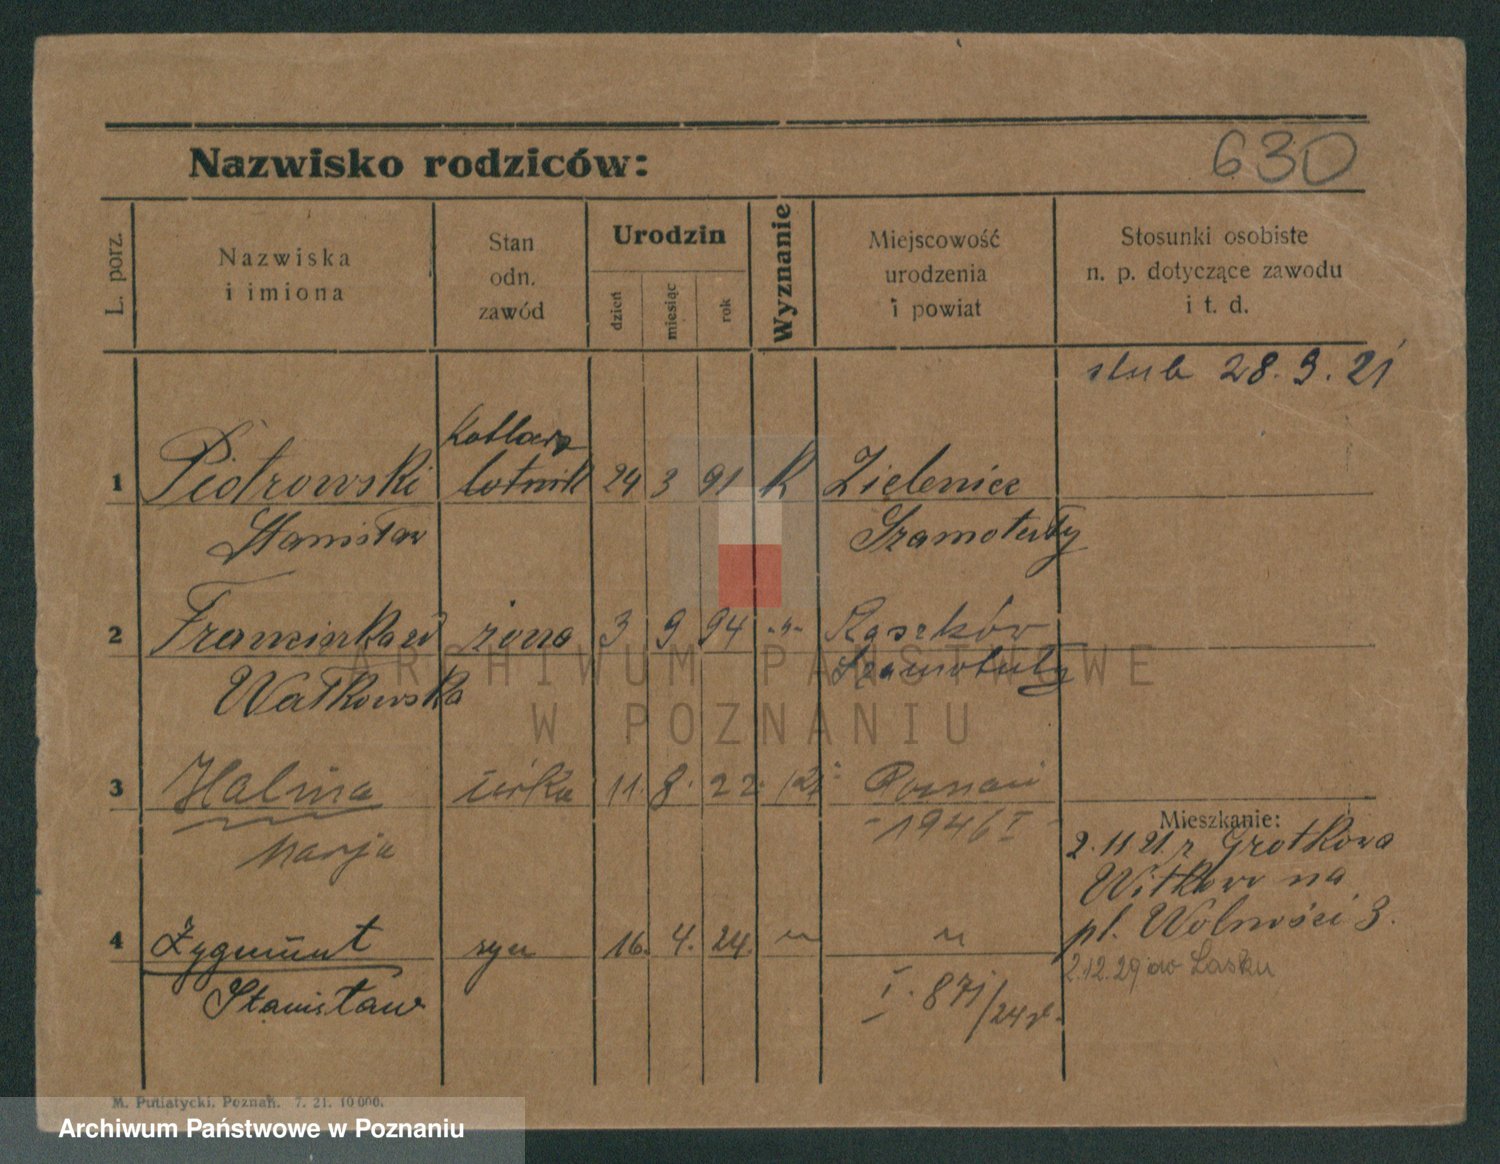 630
Nazwisko rodziców:
L. porz.
Nazwiska
i imiona
Stan
odn.
zawód
Urodzin
dzień
miesiąc
rok
Wyznanie
Miejscowość
urodzenia
i powiat
Stosunki osobiste
n. p. dotyczące zawodu
i t. d.
ślub 28. 9. 21
1 Piotrowski kotlarz 24 3 91 k Zielenice
Stanisław lotnik Szamotuły
2 Franciszka żona 3 9 94 -"- Szamotuły
Watkowska
3 Halina córka 11. 8. 22. Poznań
Marja 1946 I
Mieszkanie:
2. 11 21 z Grotkowa
Witkowo na
pl. Wolności 3.
4 Zygmunt syn 16. 4. 24. " "
Stanisław I. 871/24
2.12.29 do Lasku
M. Putiatycki. Poznań. 7. 21. 10 000.
ARCHIWUM PAŃSTWOWE
W POZNANIU
Archiwum Państwowe w Poznaniu